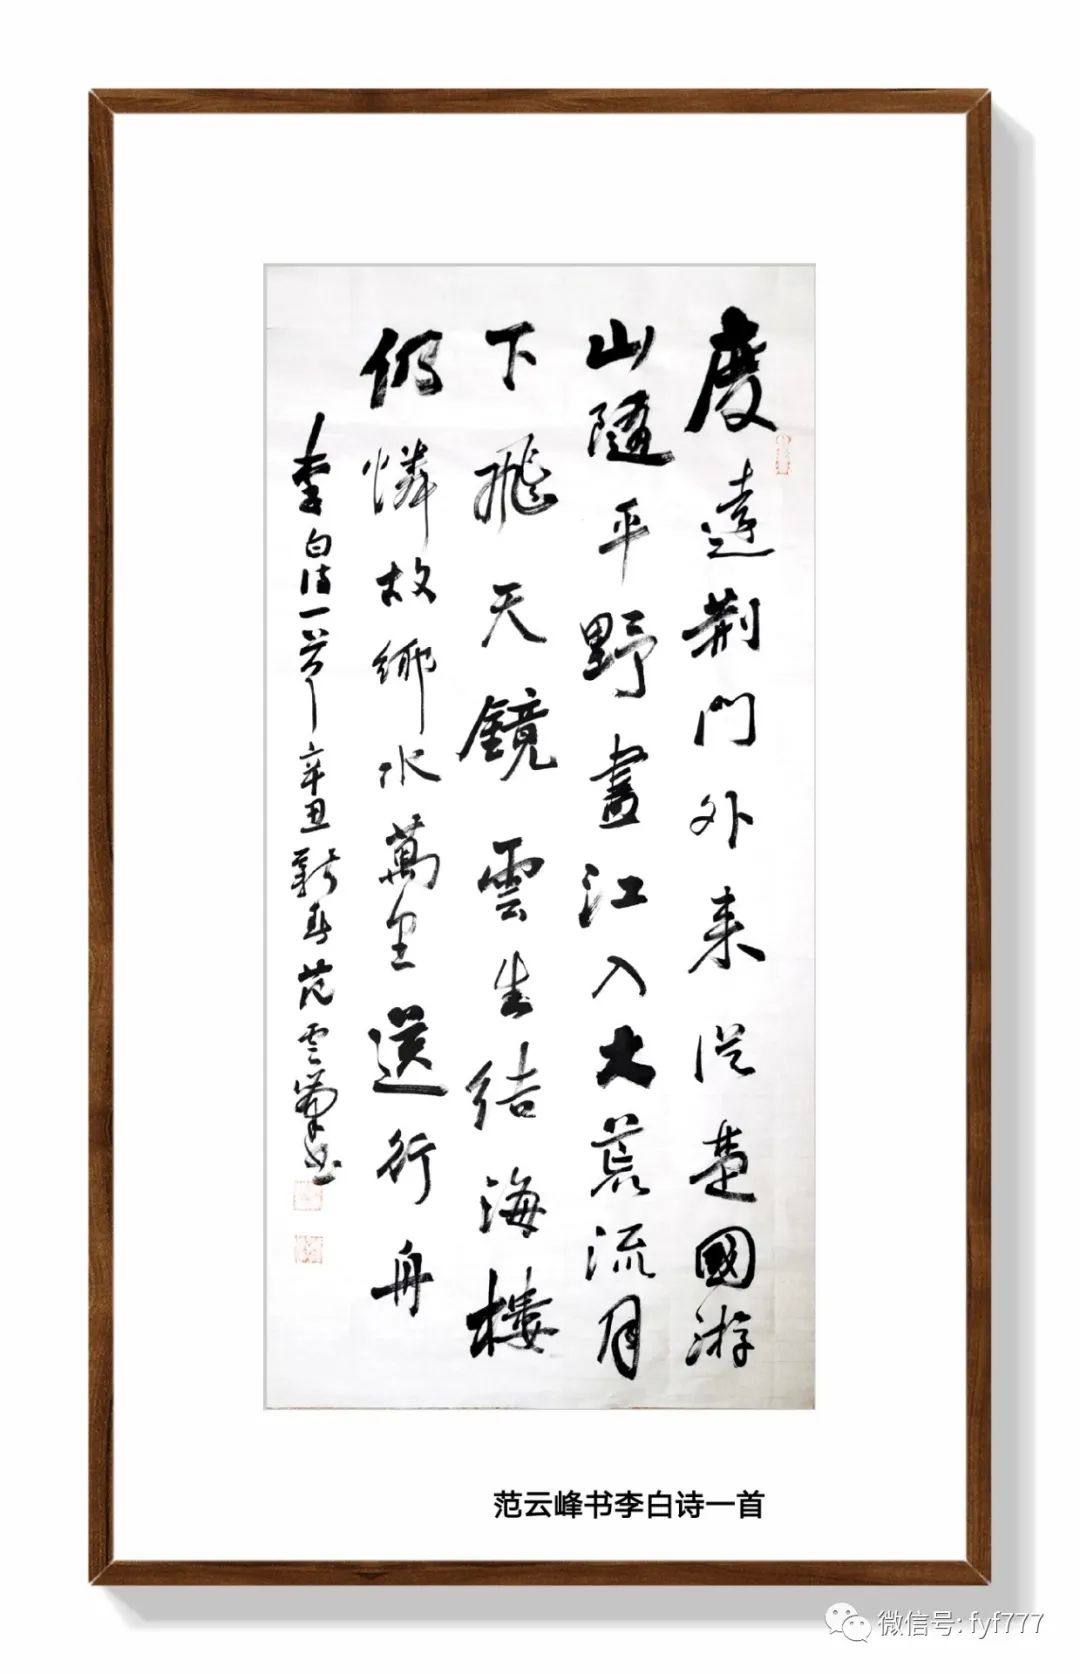 度遠荆門外来従楚國游
山隨平野盡江入大荒流月
下飛天鏡雲生结海樓
仍憐故鄉水萬里送行舟
李白诗一首辛丑新春范雲峯书
范云峰书李白诗一首
微信号: fyf777